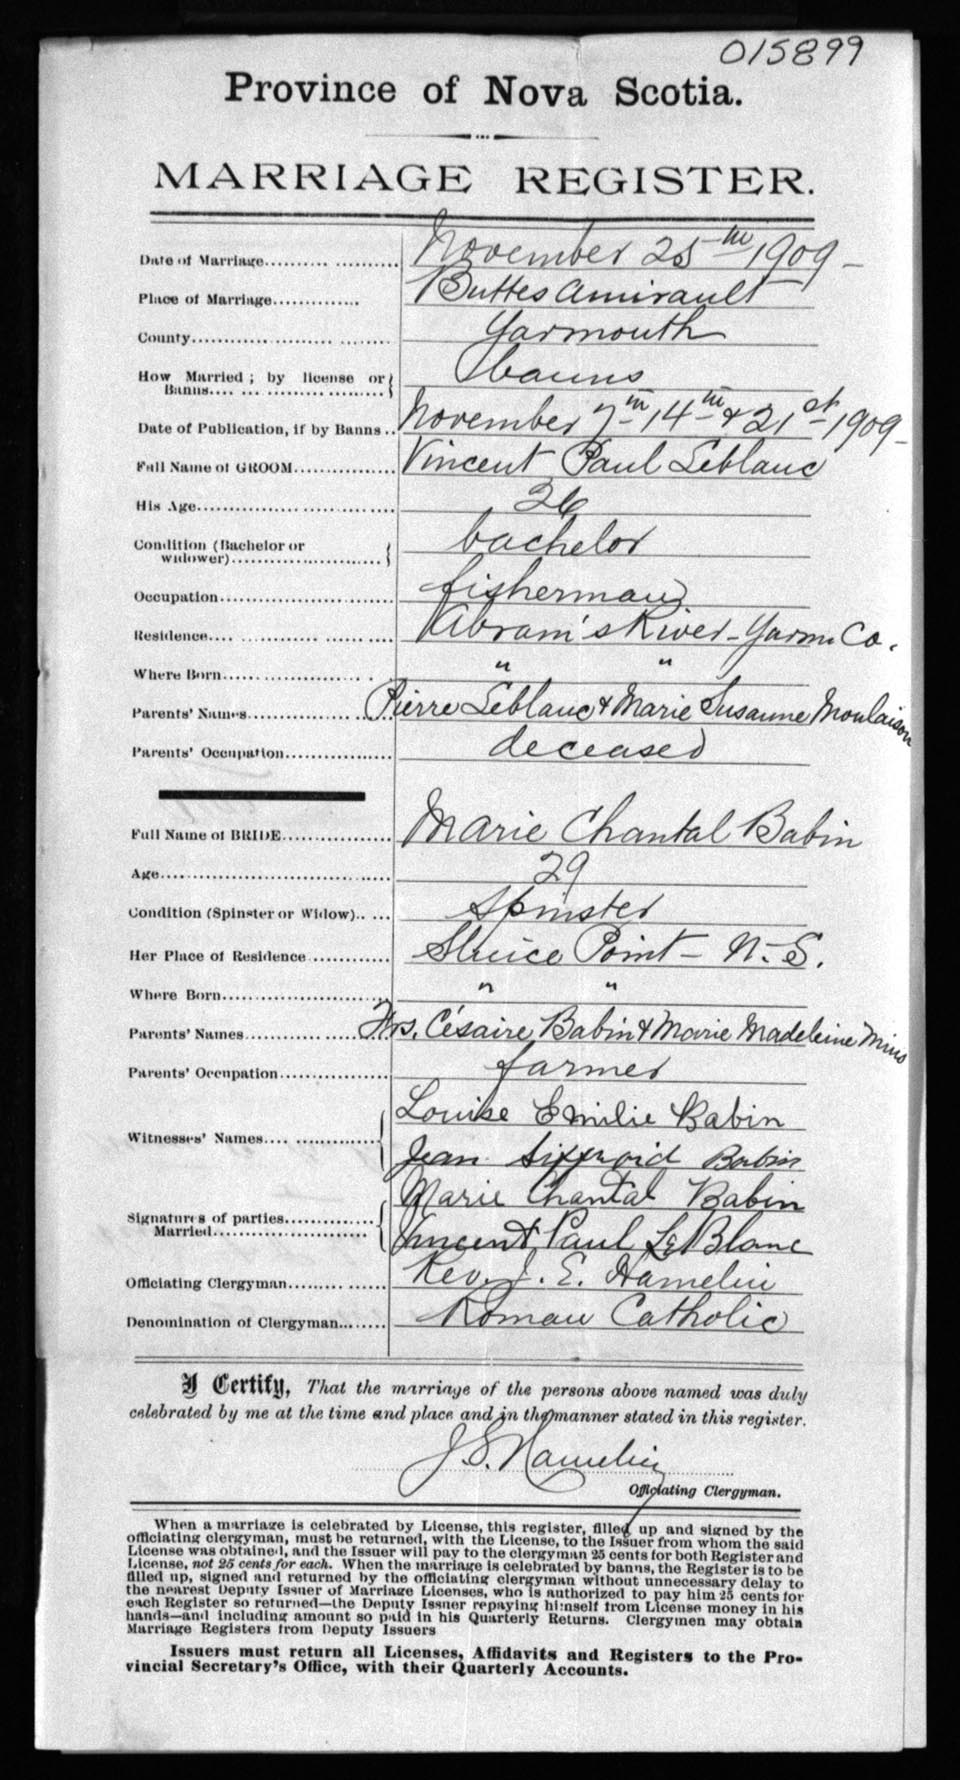 015899
Province of Nova Scotia.
MARRIAGE REGISTER.
Date of Marriage.......... November 25th 1909 -
Place of Marriage............. Buttes Amirault
County........................... Yarmouth
How Married ; by license or Banns.... banns
Date of Publication, if by Banns .. November 7th 14th & 21st 1909 -
Full Name of GROOM............... Vincent Paul Leblanc
His Age.............................. 26
Condition (Bachelor or widower)...................... bachelor
Occupation......................... fisherman
Residence.... Abram's River - Yarm. Co.
Where Born........................ " "
Parents' Names................... Pierre Leblanc & Marie Susanne Moulaison
Parents' Occupation................ deceased
Full Name of BRIDE............... Marie Chantal Babin
Age................................... 29
Condition (Spinster or Widow).. .... Spinster
Her Place of Residence ............ Sluice Point - N. S.
Where Born......................... " "
Parents' Names.................... Frs. Césaire Babin & Marie Madeleine Mius
Parents' Occupation................ farmer
Witnesses' Names.... .............. Louise Emilie Babin
Jean Babin
Signatures of parties Married...................... Marie Chantal Babin
Vincent Paul LeBlanc
Officiating Clergyman............... Rev. J. E. Hamelin
Denomination of Clergyman......... Roman Catholic
I Certify, That the marriage of the persons above named was duly
celebrated by me at the time and place and in the manner stated in this register.
J. E. Hamelin
Officiating Clergyman.
When a marriage is celebrated by License, this register, filled up and signed by the
officiating clergyman, must be returned, with the License, to the Issuer from whom the said
License was obtained, and the Issuer will pay to the clergyman 25 cents for both Register and
License, not 25 cents for each. When the marriage is celebrated by banns, the Register is to be
filled up, signed and returned by the officiating clergyman without unnecessary delay to
the nearest Deputy Issuer of Marriage Licenses, who is authorized to pay him 25 cents for
each Register so returned—the Deputy Issuer repaying himself from License money in his
hands—and including amount so paid in his Quarterly Returns. Clergymen may obtain
Marriage Registers from Deputy Issuers
Issuers must return all Licenses, Affidavits and Registers to the Pro-
vincial Secretary's Office, with their Quarterly Accounts.